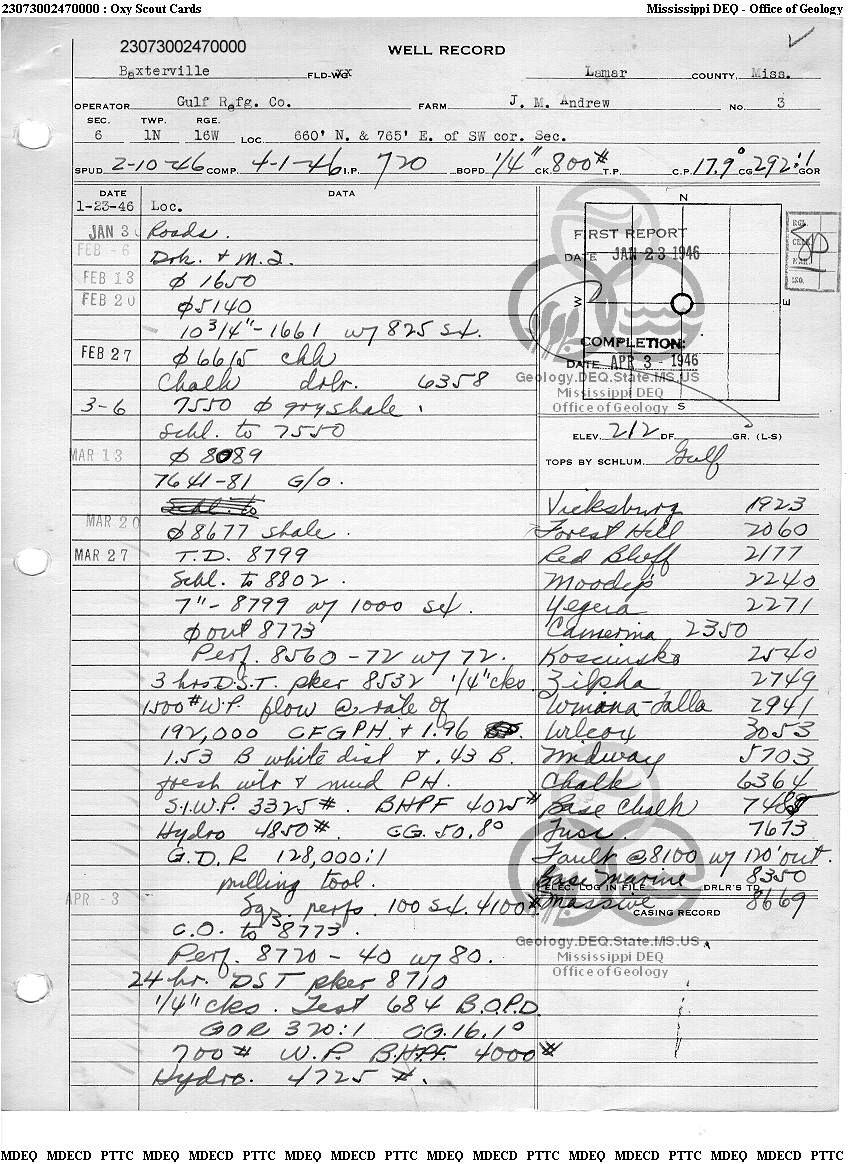 23073002470000 : Oxy Scout Cards Mississippi DEQ - Office of Geology
23073002470000
WELL RECORD
Baxterville FLD-WG xx Lamar COUNTY, Miss.
OPERATOR Gulf Refg. Co. FARM J. M. Andrew No. 3
SEC. TWP. RGE.
6 1N 16W LOC. 660' N. & 765' E. of SW cor. Sec.
SPUD 2-10-46 COMP. 4-1-46 I.P. 720 BOPD 1/4" CK. 800# T.P. C.P. 17.9° CG 292:1 GOR
DATE DATA
1-23-46 Loc.
JAN 30 Roads.
FEB - 6 Drk. & M.I.
FEB 13 ϕ 1650
FEB 20 ϕ 5140
10 3/4" - 1661 w/ 825 sx.
FEB 27 ϕ 6615 chk
Chalk drlr. 6358
3-6 7550 ϕ gry shale.
Schl. to 7550
MAR 13 ϕ 8089
7641-81 G/O.
Schl to
MAR 20 ϕ 8677 shale.
MAR 27 T.D. 8799
Schl. to 8802.
7" - 8799 w/ 1000 sx.
ϕ out 8773
Perf. 8560 - 72 w/ 72.
3 hrs D.S.T. pker 8532 1/4" cks
1500# W.P. flow @ rate of
192,000 CFGPH. & 1.96
1.53 B white dist & .43 B.
fresh wtr & mud PH.
S.I.W.P. 3325#. BHPF 4025#
Hydro 4850#. CG. 50.8°
G.O.R 128,000:1
milling tool.
APR - 3 Sqz. perfs. 100 sx. 4100#
C.O. to 8773.
Perf. 8720 - 40 w/ 80.
24 hr. DST pker 8710
1/4" cks. Test 684 B.O.P.D.
GOR 320:1 CG. 16.1°
700# W.P. B.H.P.F. 4000#
Hydro. 4725#.
N
FIRST REPORT
DATE JAN 23 1946
W E
COMPLETION:
DATE APR 3 - 1946
S
Geology.DEQ.State.MS.US
Mississippi DEQ
Office of Geology
ELEV. 212 DF. GR. (L-S)
TOPS BY SCHLUM. Gulf
Vicksburg 1923
Forest Hill 2060
Red Bluff 2177
Moodys 2240
Yegua 2271
Camerina 2350
Kosciusko 2540
Zilpha 2749
Winona-Talla 2941
Wilcox 3053
Midway 5703
Chalk 6364
Base Chalk
Tusc. 7673
Fault @ 8100 w/ 120' out.
Base Marine 8350
ELEC. LOG IN FILE DRLR'S TD
Massive 8669
CASING RECORD
Geology.DEQ.State.MS.US
Mississippi DEQ
Office of Geology
MDEQ MDECD PTTC MDEQ MDECD PTTC MDEQ MDECD PTTC MDEQ MDECD PTTC MDEQ MDECD PTTC MDEQ MDECD PTTC